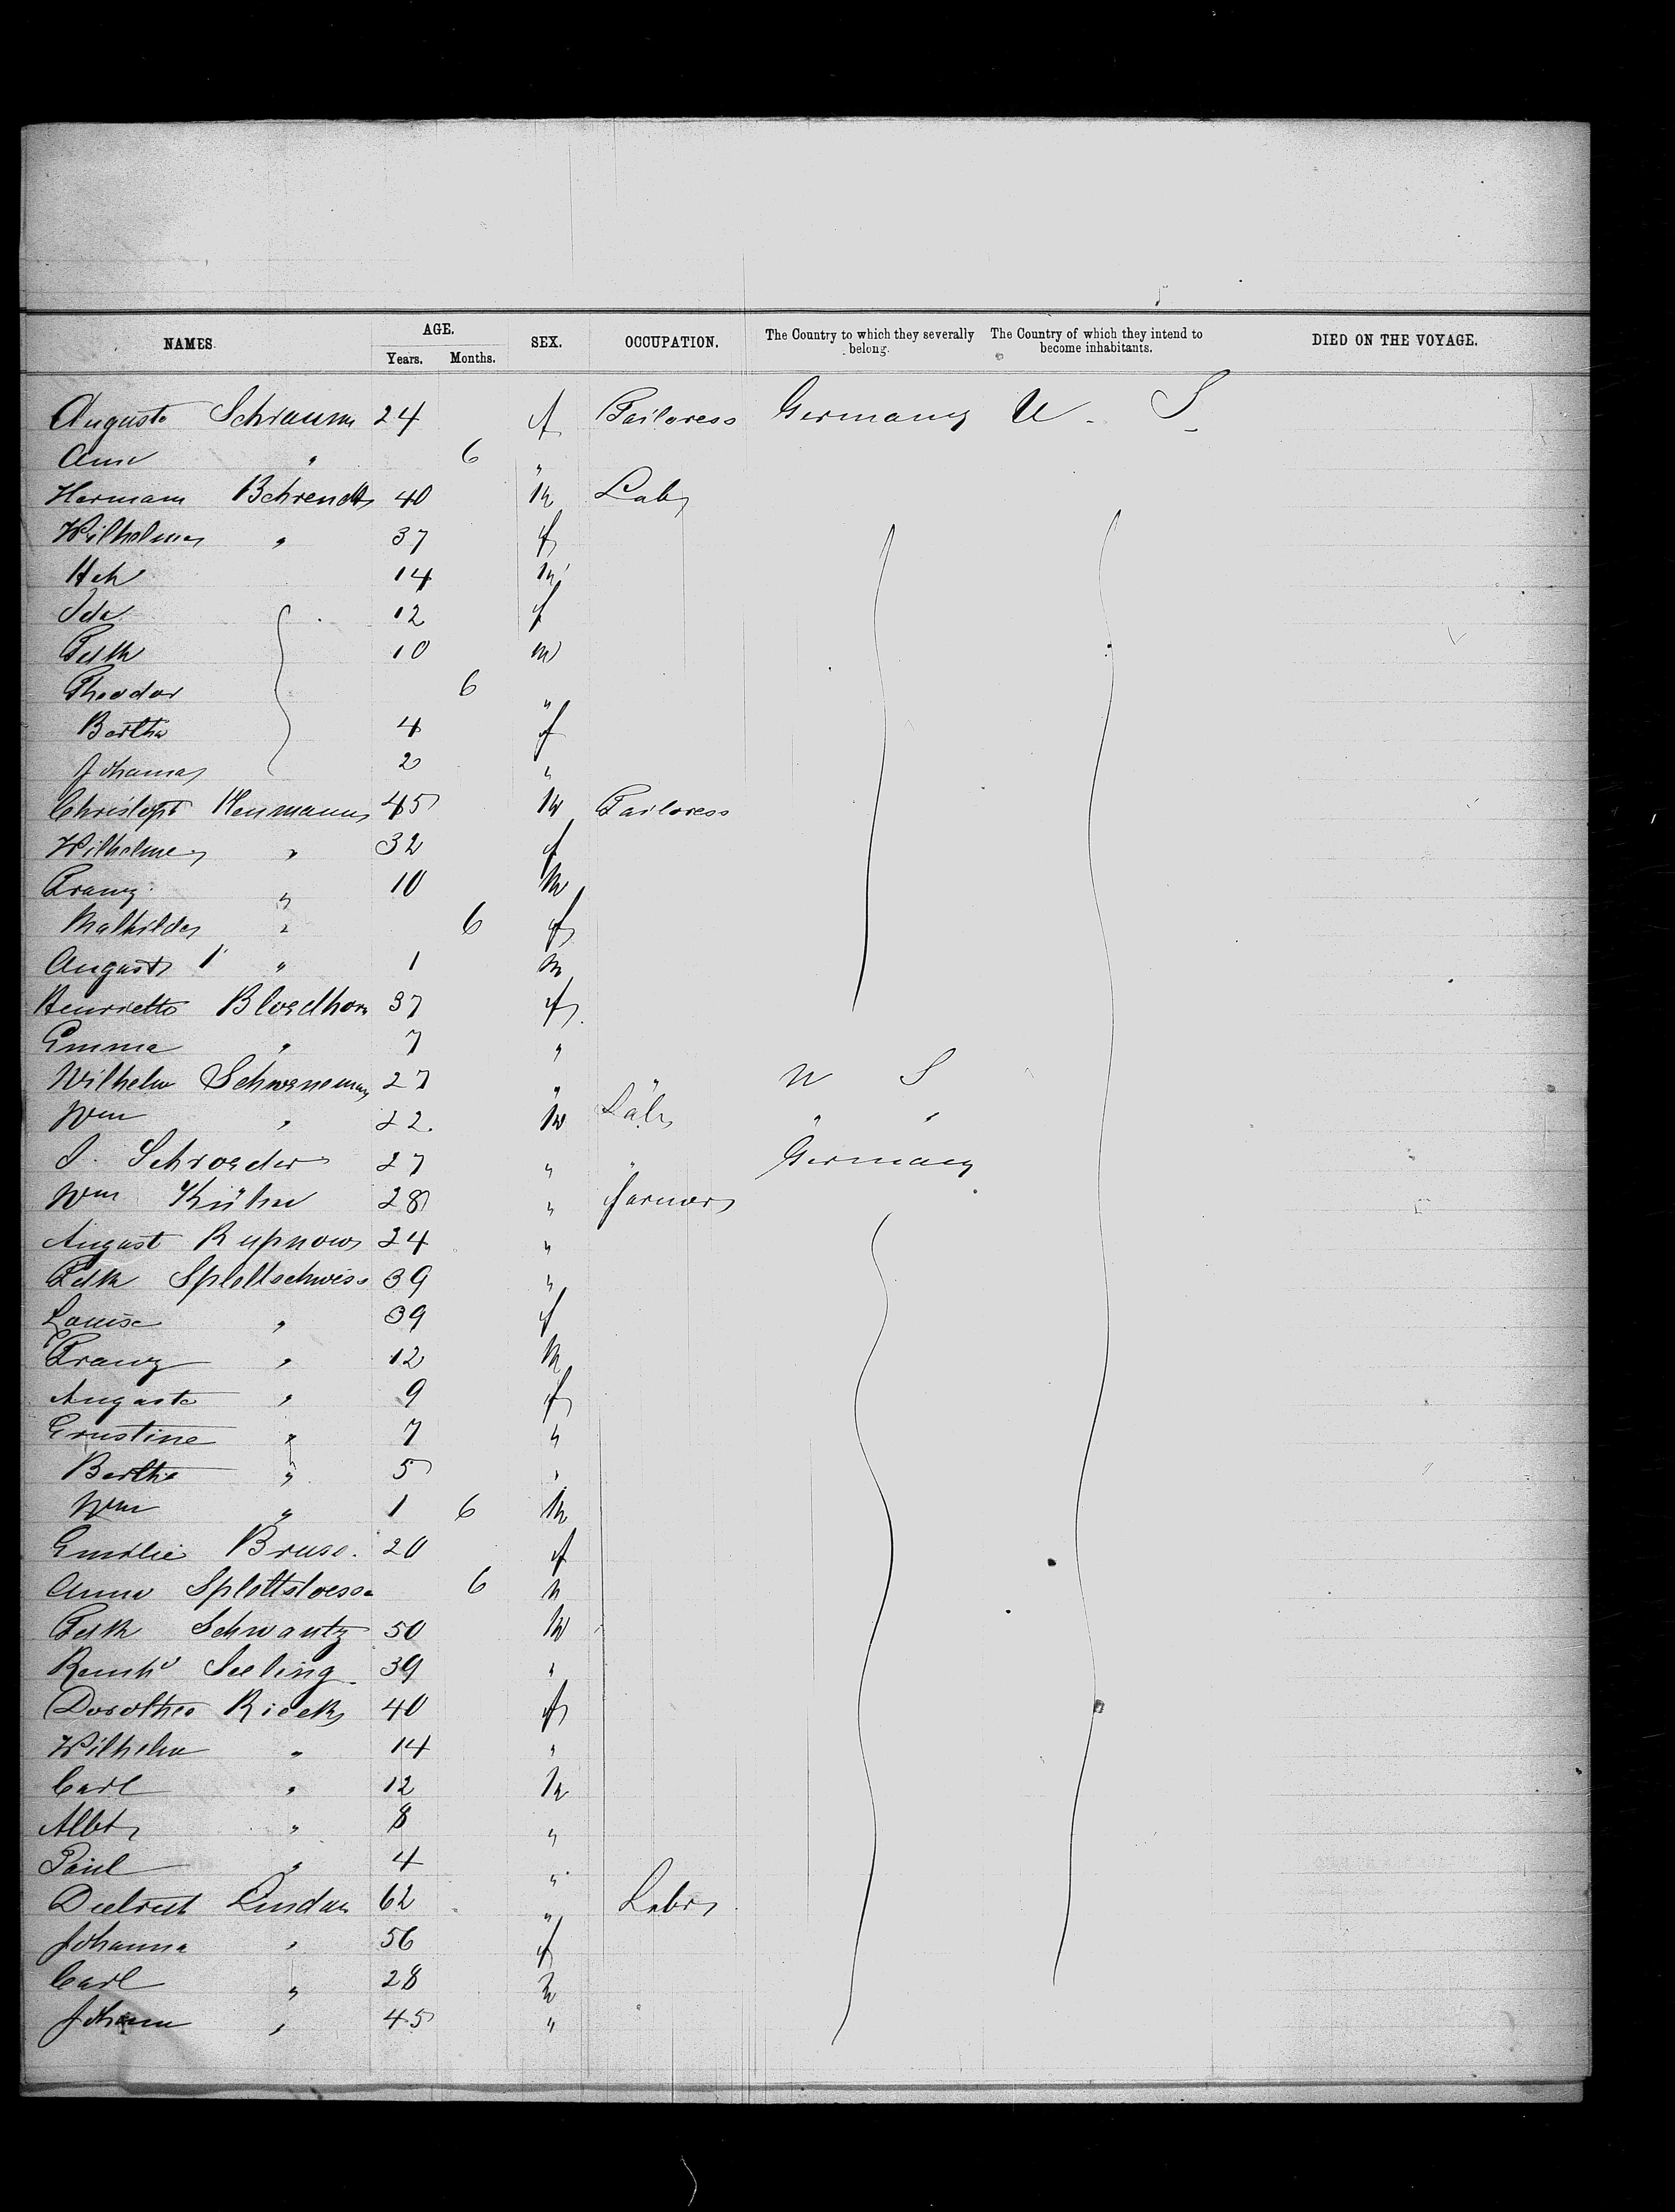 NAMES. AGE. SEX. OCCUPATION. The Country to which they severally belong. The Country of which they intend to become inhabitants. DIED ON THE VOYAGE.
Years. Months.
Auguste Schraum 24 f Tailoress Germany U. S.
Ann " 6 "
Hermann Behrendt 40 m Labr
Wilhelmer " 37 f
Hch 14 m
Ida 12 f
Fdk 10 m
Theodor 6 "
Bertha 4 f
Johanna 2 "
Christopt Neumann 45 m Tailoress
Wilhelme " 32 f
Franz " 10 m
Mathilde " 6 f
August " 1 m
Henriette Bloedhorn 37 f
Emma " 7 "
Wilhelm Schweneman 27 " " U S
Wm " 22 m Labr " "
J. Schroeder 27 " " Germany
Wm Kühn 28 " farmer
August Rupnow 24 "
Fdk Splettschwiss 39 "
Louise " 39 f
Franz " 12 m
Auguste " 9 f
Ernstine " 7 "
Berthe " 5 "
Wm " 1 6 m
Emilie Bruse. 20 f
Anna Splettstoess 6 "
Fdk Schwantz 50 m
Reinhd Seeling 39 "
Dorothea Rieck 40 f
Wilhelm " 14 "
Carl " 12 m
Albt " 8 "
Paul " 4 "
Lindau 62 " Labr
Johanna " 56 f
Carl " 28 m
Johann " 45 "